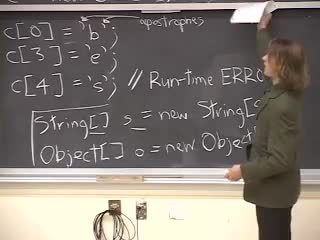 c[0] = 'b';
apostrophes
c[3] = 'e';
c[4] = 's'; // Run-time ERRO
String[] s = new String[
Object[] o = new Object